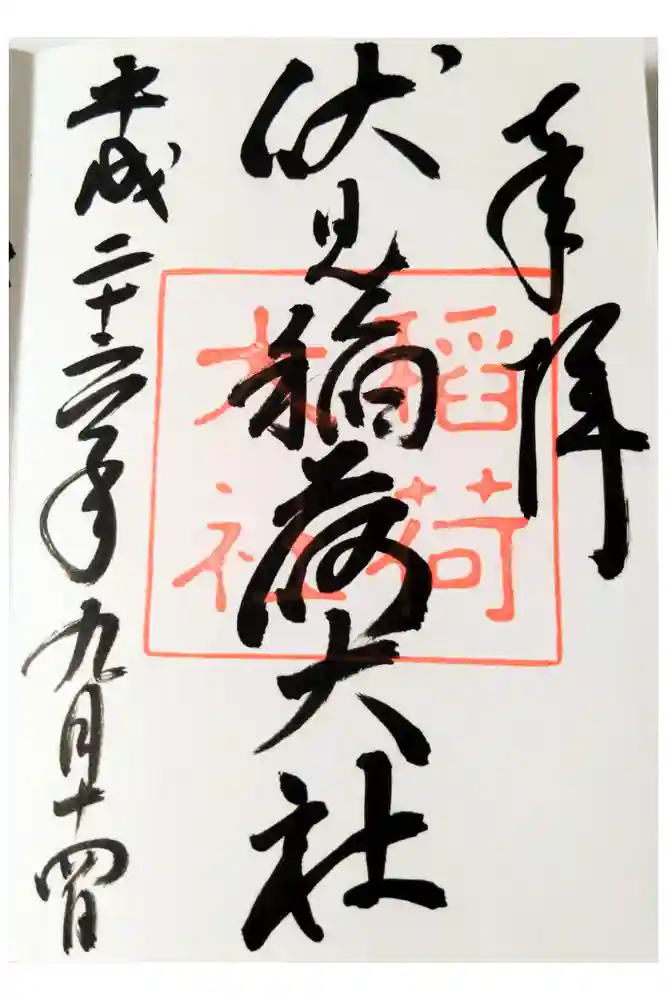 奉拝
伏見稲荷大社
稲荷
大社
平成二十六年九月十四日